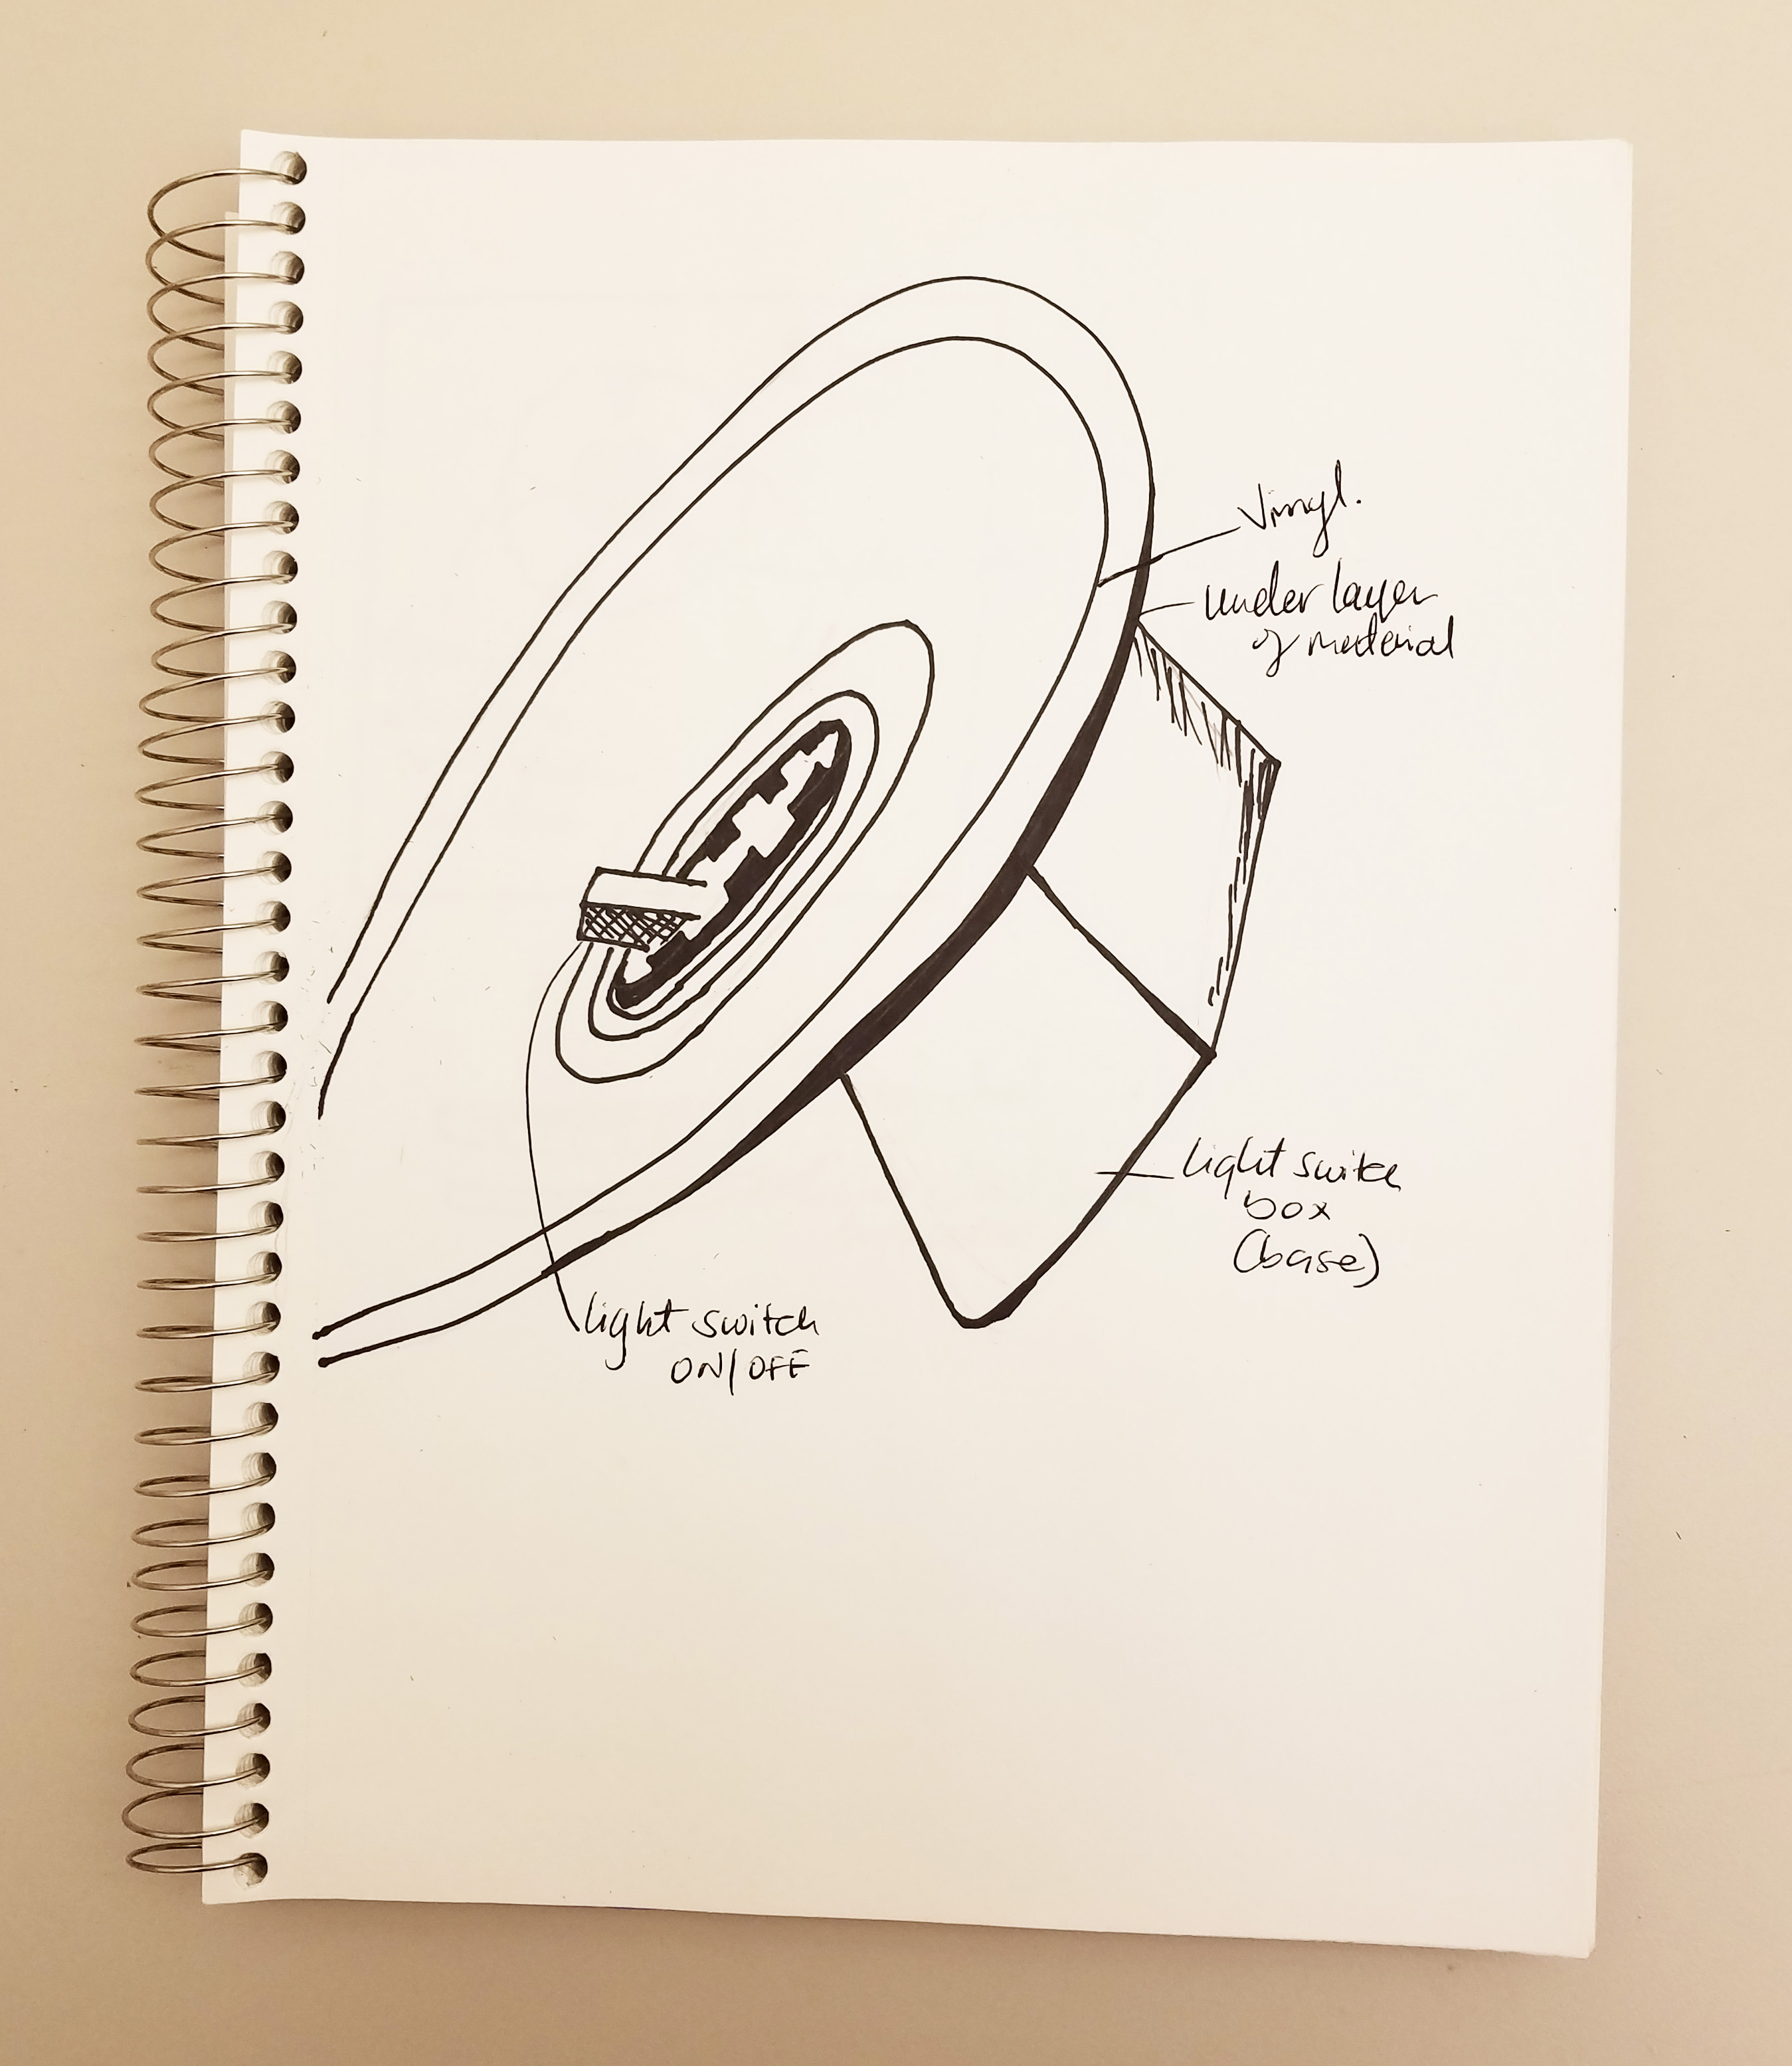 Vinyl.
under layer
of material
light switch
box
(base)
light switch
ON/OFF